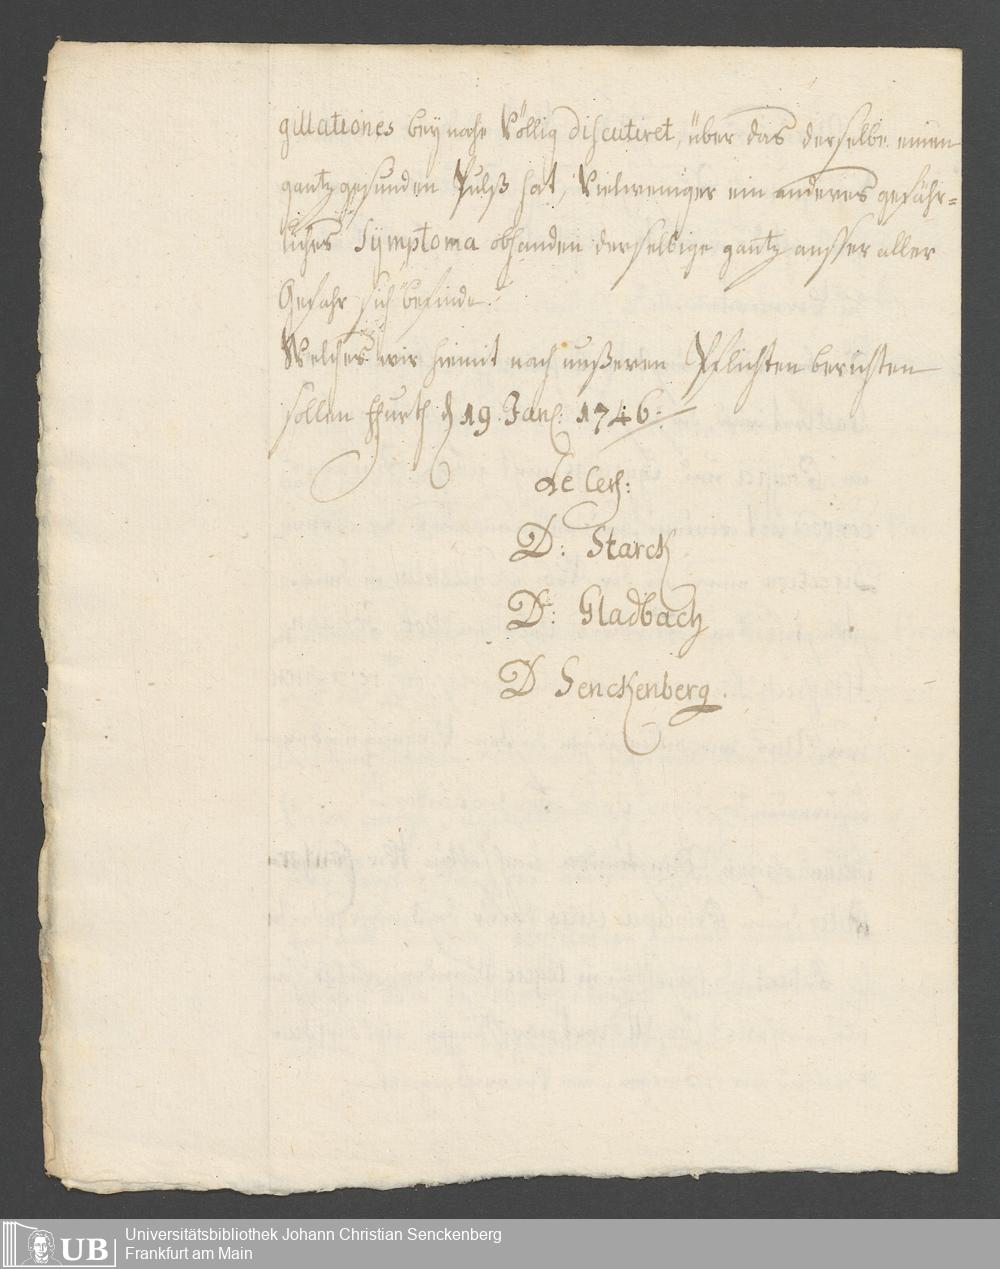 gillationes bey nahe Völlig discutiret, über das derselbe einen
gantz gesunden Pulß hat, Vielweniger ein anderes gefähr=
liches Symptoma obhanden derselbige gantz ausser aller
Gefahr sich befinde.
Welches wir hiemit nach unßeren Pflichten berichten
sollen ffurth d 19. Jan. 1746.
D: Starck
D: Gladbach
D Senckenberg.
UB
Universitätsbibliothek Johann Christian Senckenberg
Frankfurt am Main